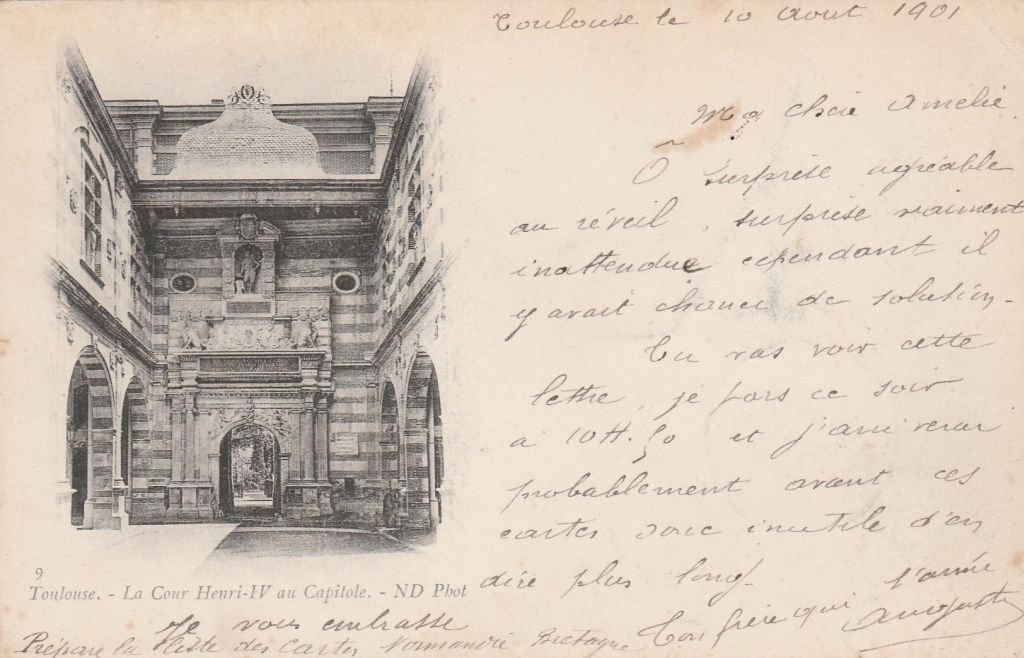 Toulouse le 10 Aout 1901
Ma chère Amelie
Ô surprise agréable
au réveil, surprise vraiment
inattendue cependant il
y avait chance de solution.
Tu vas voir cette
lettre, je pars ce soir
à 10H.50 et j'arriverai
probablement avant ces
cartes donc inutile d'en
dire plus long.
Ton frère qui t'aime
Auguste
Je vous embrasse
Prépare la liste des cartes Normandie Bretagne
9
Toulouse. - La Cour Henri-IV au Capitole. - ND Phot